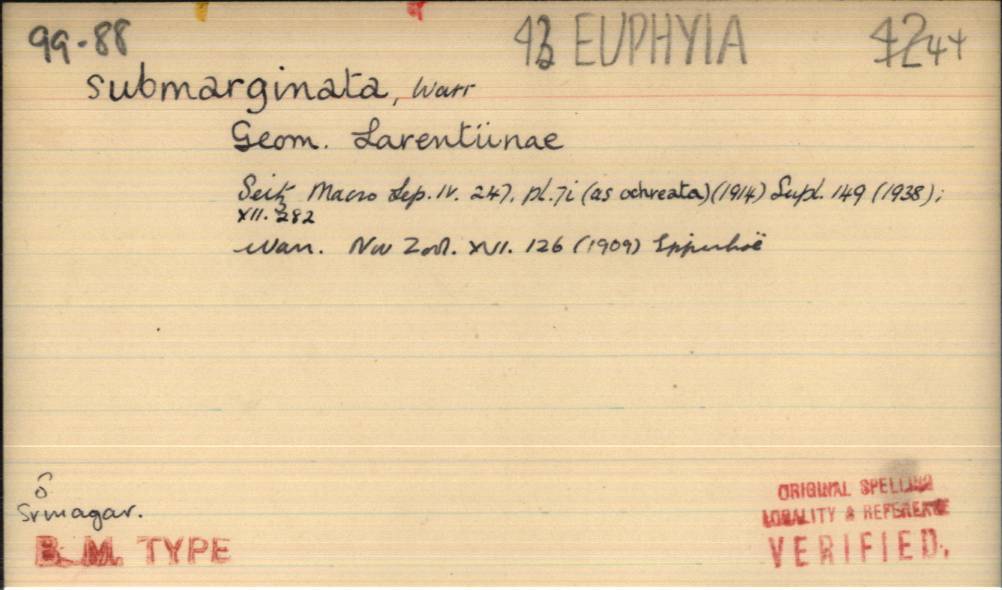 99-88 43 EUPHYIA 4244
submarginata, Warr
Geom. Larentiinae
Seitz Macro Lep. IV. 247, pl. 7i (as ochreata) (1914) Supl. 149 (1938);
XII. 282
Warr. Nov Zool. XVI. 126 (1909) Epirrhoë
♂
Srinagar.
B. M. TYPE
ORIGINAL SPELLING
LOCALITY & REFERENCE
VERIFIED.